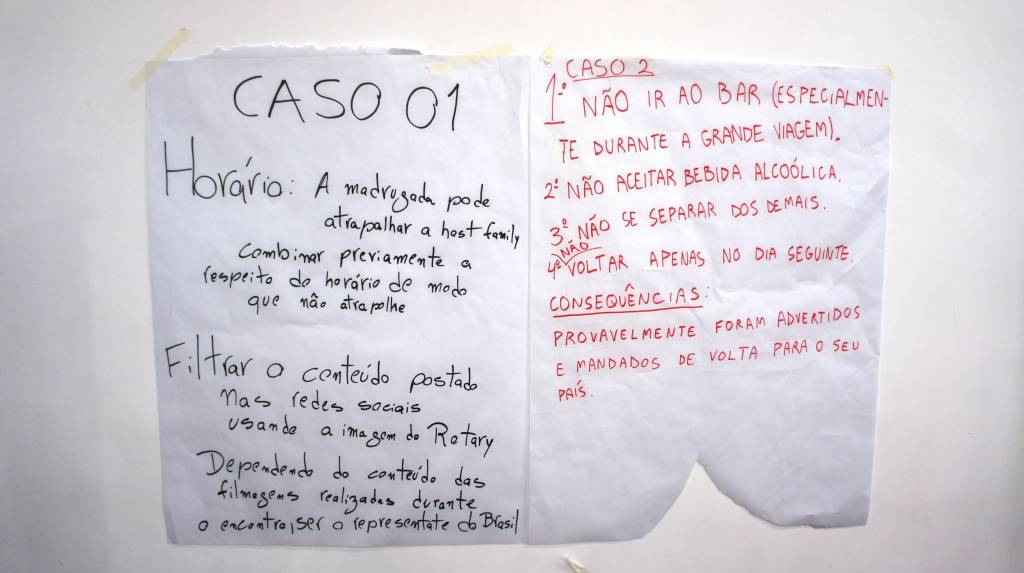 CASO 01
Horário: A madrugada pode
atrapalhar a host family
Combinar previamente a
respeito do horário de modo
que não atrapalhe
Filtrar o conteúdo postado
nas redes sociais
usando a imagem do Rotary
Dependendo do conteúdo das
filmagens realizadas durante
o encontro, ser o representate do Brasil
CASO 2
1º NÃO IR AO BAR (ESPECIALMEN-
TE DURANTE A GRANDE VIAGEM).
2º NÃO ACEITAR BEBIDA ALCOÓLICA.
3º NÃO SE SEPARAR DOS DEMAIS.
NÃO
4º VOLTAR APENAS NO DIA SEGUINTE.
CONSEQUÊNCIAS:
PROVAVELMENTE FORAM ADVERTIDOS
E MANDADOS DE VOLTA PARA O SEU
PAÍS.